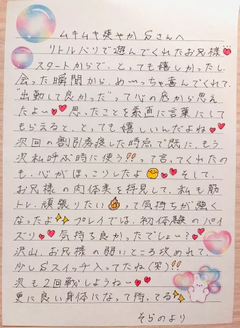 ムキムキ爽やかSさんへ
リトルパリで遊んでくれたお兄様
スタートからで、とっても嬉しかったし、
会った瞬間から、めーっちゃ喜んでくれて、
"出勤して良かった"って心の底から思え
たよー 思ったことを素直に言葉にして
もらえると、とっても嬉しいんだよね
次回の割引券渡した時点で既に、もう
次私呼ぶ時に使う!!って言ってくれたの
も、心がほっこりしたよ そして、
お兄様の肉体美を拝見して、私も筋
トレ頑張りたい って気持ちが強く
なったよ プレイでは、初体験のパイ
ズリ 気持ち良かったでしょー?
沢山、お兄様の弱いところ攻めれて、
少しSスイッチ入ってたね(笑)!!
次も2回戦しようねー
更に良い身体になって待ってる
そらのより